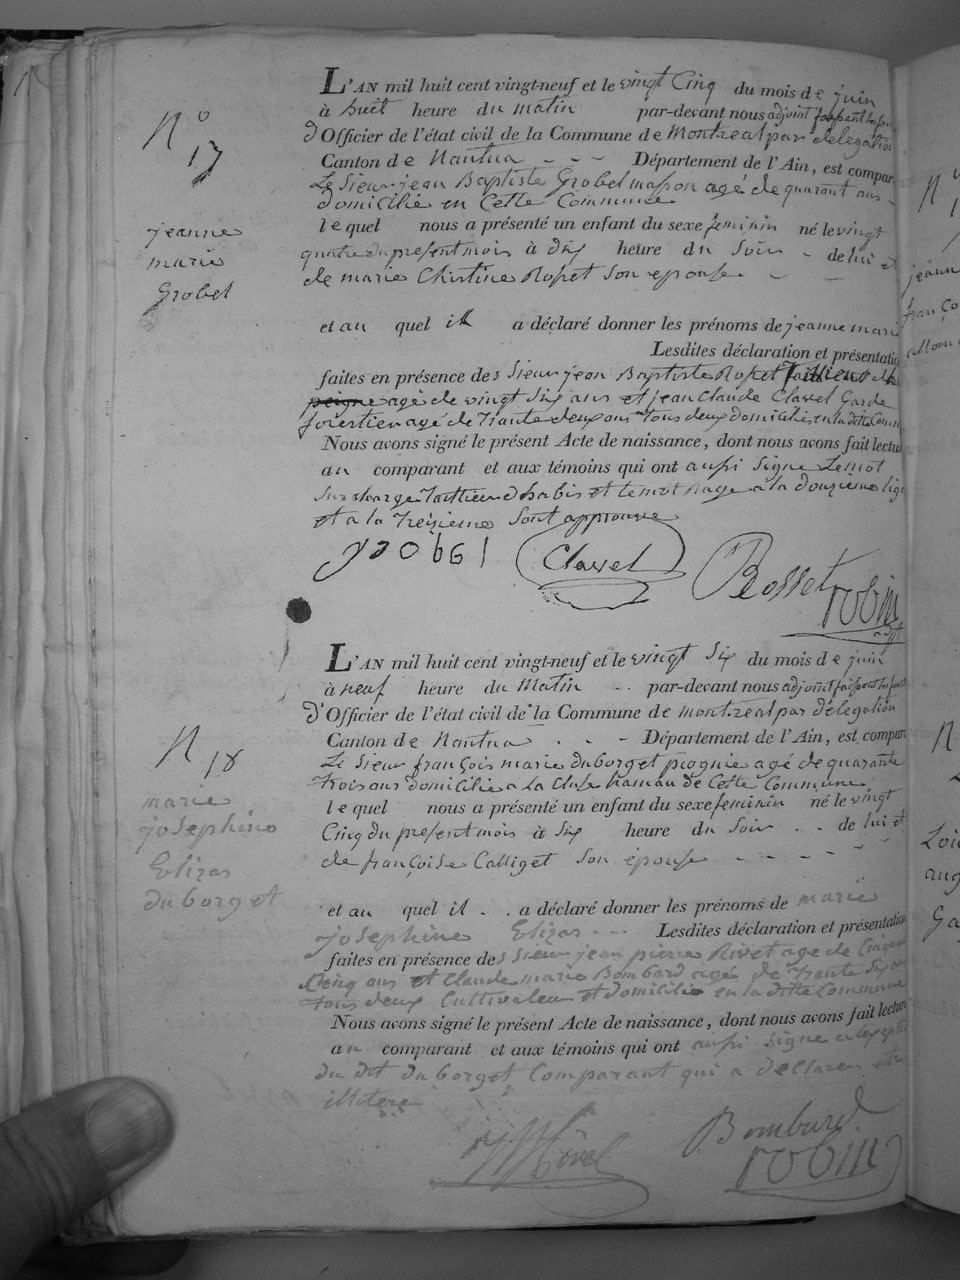 N° 17
jeanne
marie
Grobel
L'AN mil huit cent vingt-neuf et le vingt Cinq du mois de juin
à huit heure du matin par-devant nous adjoint faisant les fon
d'Officier de l'état civil de la Commune de Montreal par delegation
Canton de Nantua - - - Département de l'Ain, est compar
Le Sieur jean Baptiste Grobel masson agé de quarant ans
domicilié en Cette Commune
lequel nous a présenté un enfant du sexe feminin né le vingt
quatre du present mois à dix heure du Soir - de lui et
de marie Christine Rosset Son epouse - -
et au quel il a déclaré donner les prénoms de jeanne marie
Lesdites déclaration et présentatio
faites en présence des Sieur jean Baptiste Rosset Taillieur d'ha
peigne agé de vingt Six ans et jean Claude Clavel Garde
forestier agé de Trante deux ans Tous deux domiciliés en la ditte Comm
Nous avons signé le présent Acte de naissance, dont nous avons fait lectu
au comparant et aux témoins qui ont aussi Signe Le mot
Surcharge Taillieur d'habis et le mot Raye a la douzieme lig
et a la Treizieme Sont approuve
grobel Clavel Rosset robin
L'AN mil huit cent vingt-neuf et le vingt Six du mois de juin
à neuf heure du Matin - - par-devant nous adjoint faisant les fonct
d'Officier de l'état civil de la Commune de montreal par délégation
N 18
Canton de Nantua - - - Département de l'Ain, est compar
Le Sieur françois marie duborget piognie agé de quarante
Trois ans domicilie a La Cluse hamau de Cette Commune
marie
josephine
Elizas
duborget
lequel nous a présenté un enfant du sexe feminin né le vingt
Cinq du present mois à Six heure du Soir - - de lui et
de françoise Calliget Son épouse - - - - -
et au quel il - - a déclaré donner les prénoms de marie
josephine Elizas - - - Lesdites déclaration et présentation
faites en présence des Sieur jean pierre Rivet agé de Cinquant
Cinq ans et Claude marie Bombard agé de Trante Six an
Tous deux Cultivateur et domicilié en la ditte Commune
Nous avons signé le présent Acte de naissance, dont nous avons fait lecture
au comparant et aux témoins qui ont aussi Signe a l'exeptio
du dit duborget Comparant qui a déclarer etre
illitere
Bombard
robin